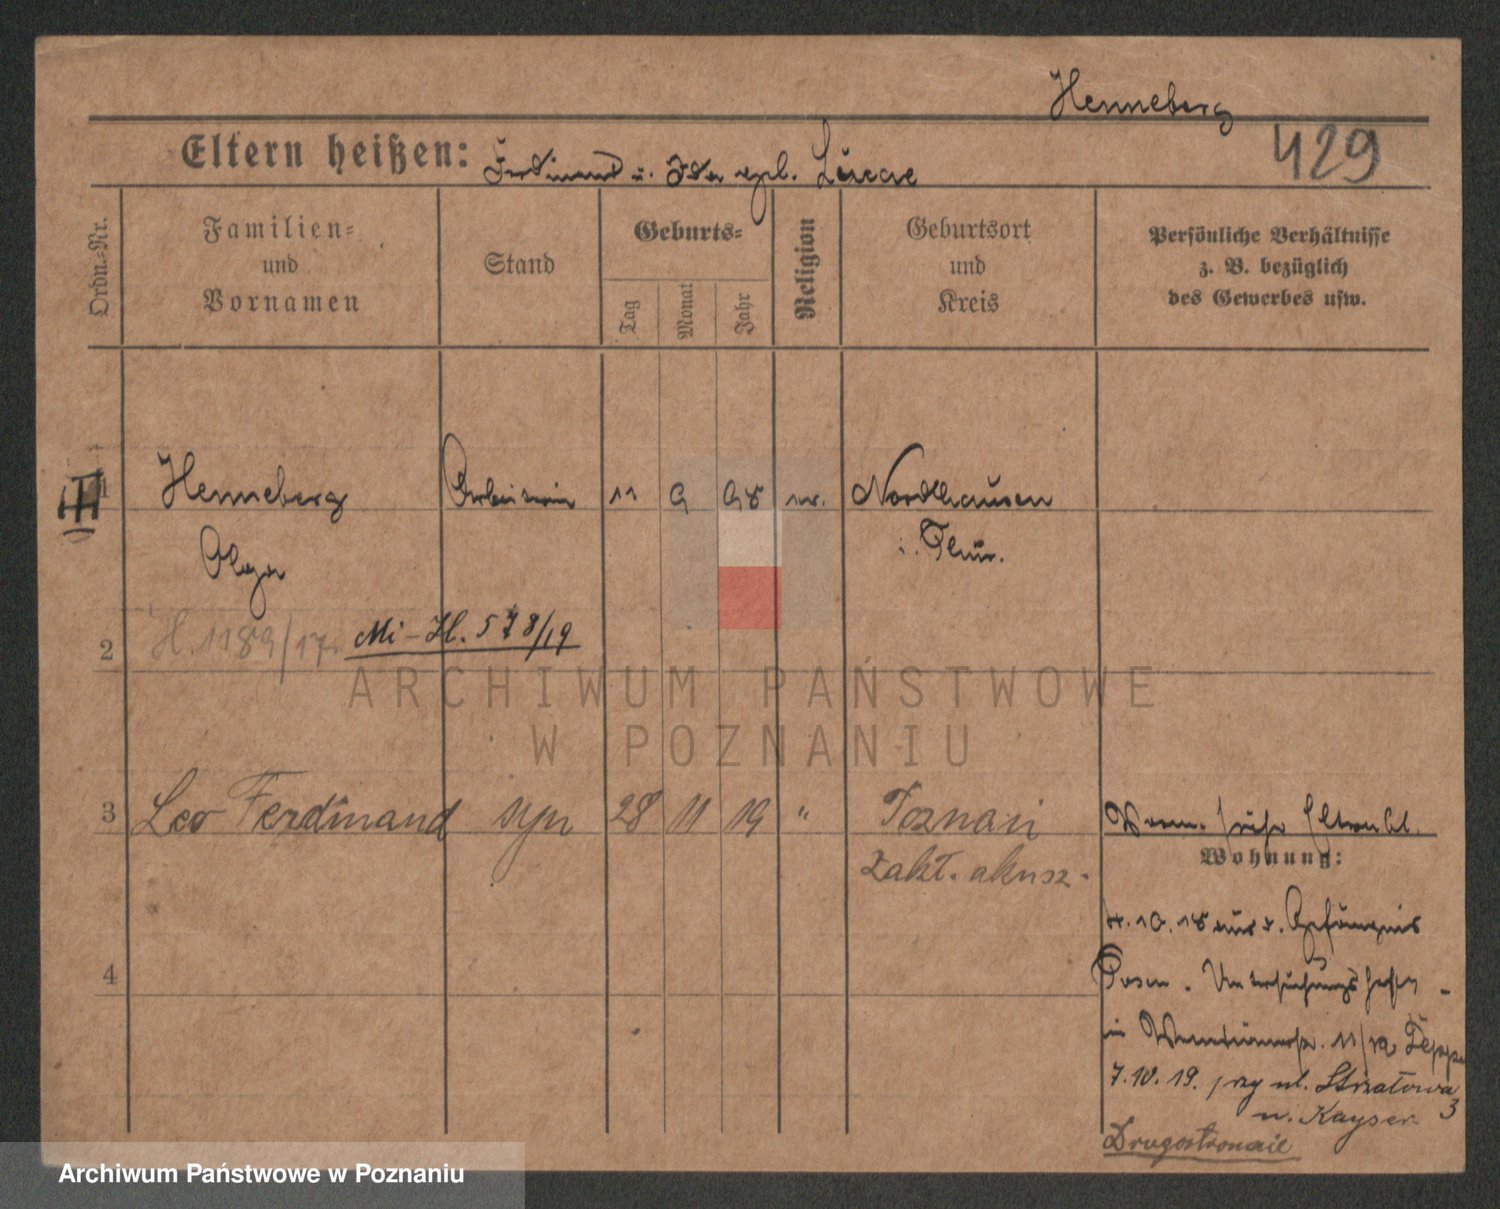 Henneberg
429
Eltern heißen: Ferdinand u. Ida geb.
Ordn.-Nr.
Familien-
und
Vornamen
Stand
Geburts-
Tag
Monat
Jahr
Religion
Geburtsort
und
Kreis
Persönliche Verhältnisse
z. B. bezüglich
des Gewerbes usw.
1 Henneberg Arbeiterin 11 9 98 Nordhausen
Olga i. Thür.
2 H. 1189/17. Mi-H. 578/19
ARCHIWUM PAŃSTWOWE
W POZNANIU
3 Leo Ferdinand syn 28 11 19 " Poznań
zakł. akusz.
Wohnung:
4.10.18 aus d. Gefängnis
4 Posen. Untersuchungshaft -
in 11/12
7.10.19. przy ul. Strzałowa 3
u. Kayser
Drugostronnie
Archiwum Państwowe w Poznaniu